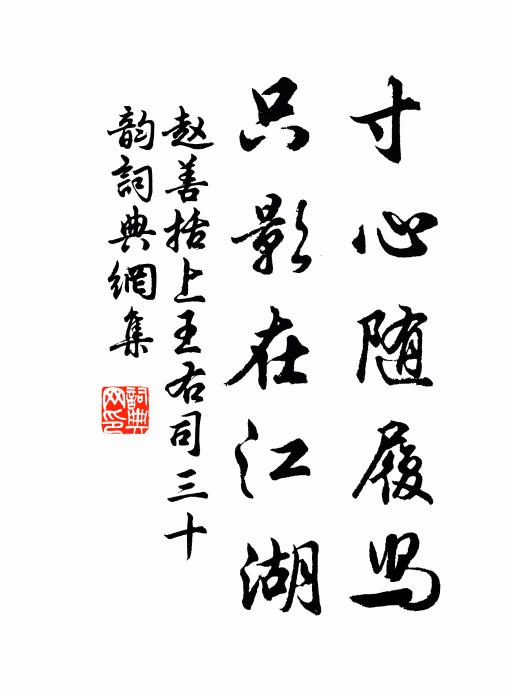 寸心随履舄
只影在江湖
赵善括上王右司三十
韵詞典網集
詞典网印